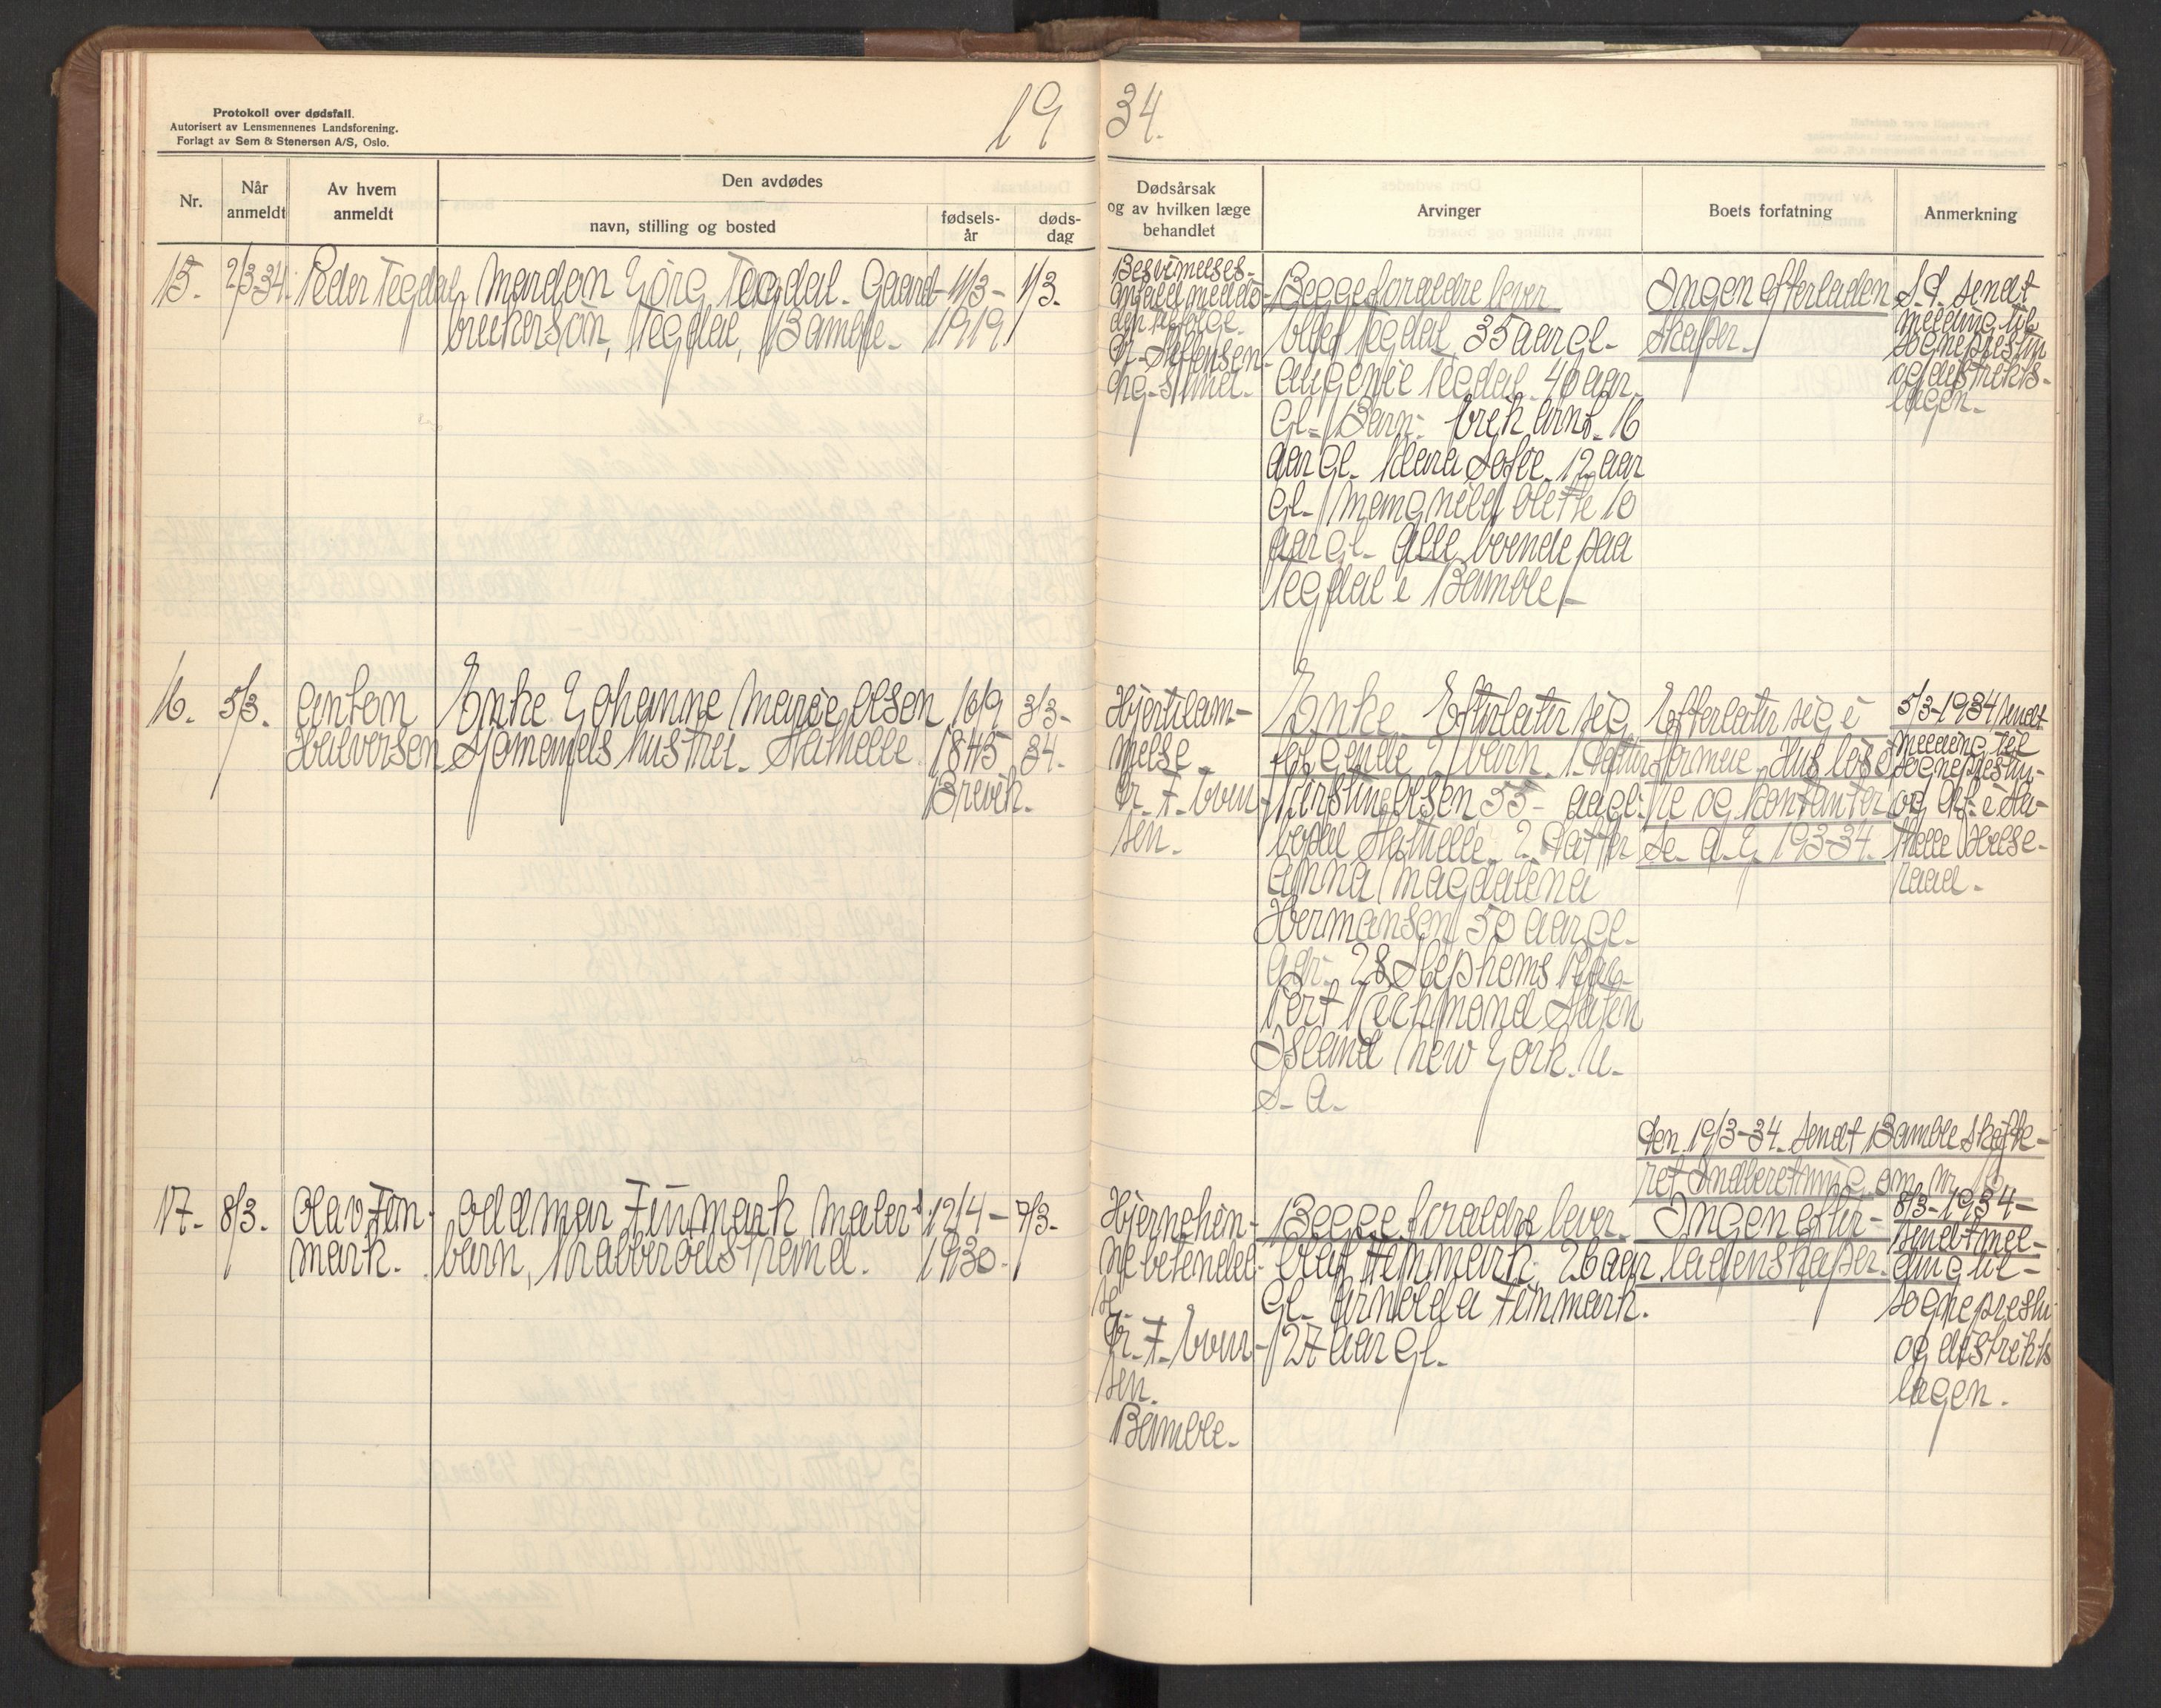 Protokoll over dødsfall.
Autorisert av Lensmennenes Landsforening.
Forlagt av Sem & Stenersen A/S, Oslo.
19 34.
Nr.
Når
anmeldt
Av hvem
anmeldt
Den avdødes
navn, stilling og bosted
fødsels-
år
døds-
dag
Dødsårsak
og av hvilken læge
behandlet
Arvinger
Boets forfatning
Anmerkning
15.
2/3-34.
Peder Tegdal
Mardon Yörg Tegdal. Gaard-
brukersön, Tegdal, Bamble.
11/3-
1919.
1/3.
Besvimelses-
anfald med dö-
den tilfölge.
Dr.
Begge foraldre lever
Olaf Tegdal 35 aar gl-
Augenie Tegdal. 40 aar.
Gl- Barn: Erik Arnt. 16
aar gl. Klara Sofie. 12 aar
gl- Olette 10
aar gl- Alle boende paa
Tegdal i Bamble.
Ingen efterladen
skaper.
S.D. sendt
melding til
sognepresten
og distrikts-
lægen.
16.
5/3.
Anton
Halvorsen
Enke Yohanne Marie Olsen
Sjömands hustru. Stathelle
16/9
1845
Brevik.
3/3-
34.
Hjertelam-
melse
Dr. F. Coun-
sen.
Enke. Efterlater sig
følgende 2 barn. 1. datter
Kirstine Olsen 55- aagl.
bopæl Stathelle. 2. Datter
Anna Magdalena
Hermansen 50 aar gl.
Adr. 28 Stephems Plac-
Port Richmond Staten
Island New York. U-
S- A-
Efterlater sig i
formue. Hus löse
re og kontanter
Se. A. Y. 193-34.
5/3-1934 sendt
melding til
sognepresten-
og Df. i Sta-
thelle Helse-
raad.
Den. 19/3-34. sendt Bamble skifte-
ret Indberetning om nr 16
17.
8/3.
Olav Fin-
mark.
Oddmar Finmark Maler's
barn, Krabberödstrand.
12/4-
1930.
7/3-
Hjernehin-
ne betendel-
se.
Dr. F. Coun-
sen.
Bamble.
Begge foraldre lever
Olaf Finmark. 26 aar
Gl- Arnolda Finmark.
27 aar gl.
Ingen efter-
ladenskaper.
8/3-1934-
sendt mel-
ding til-
sognepresten
og distrikts
lægen.